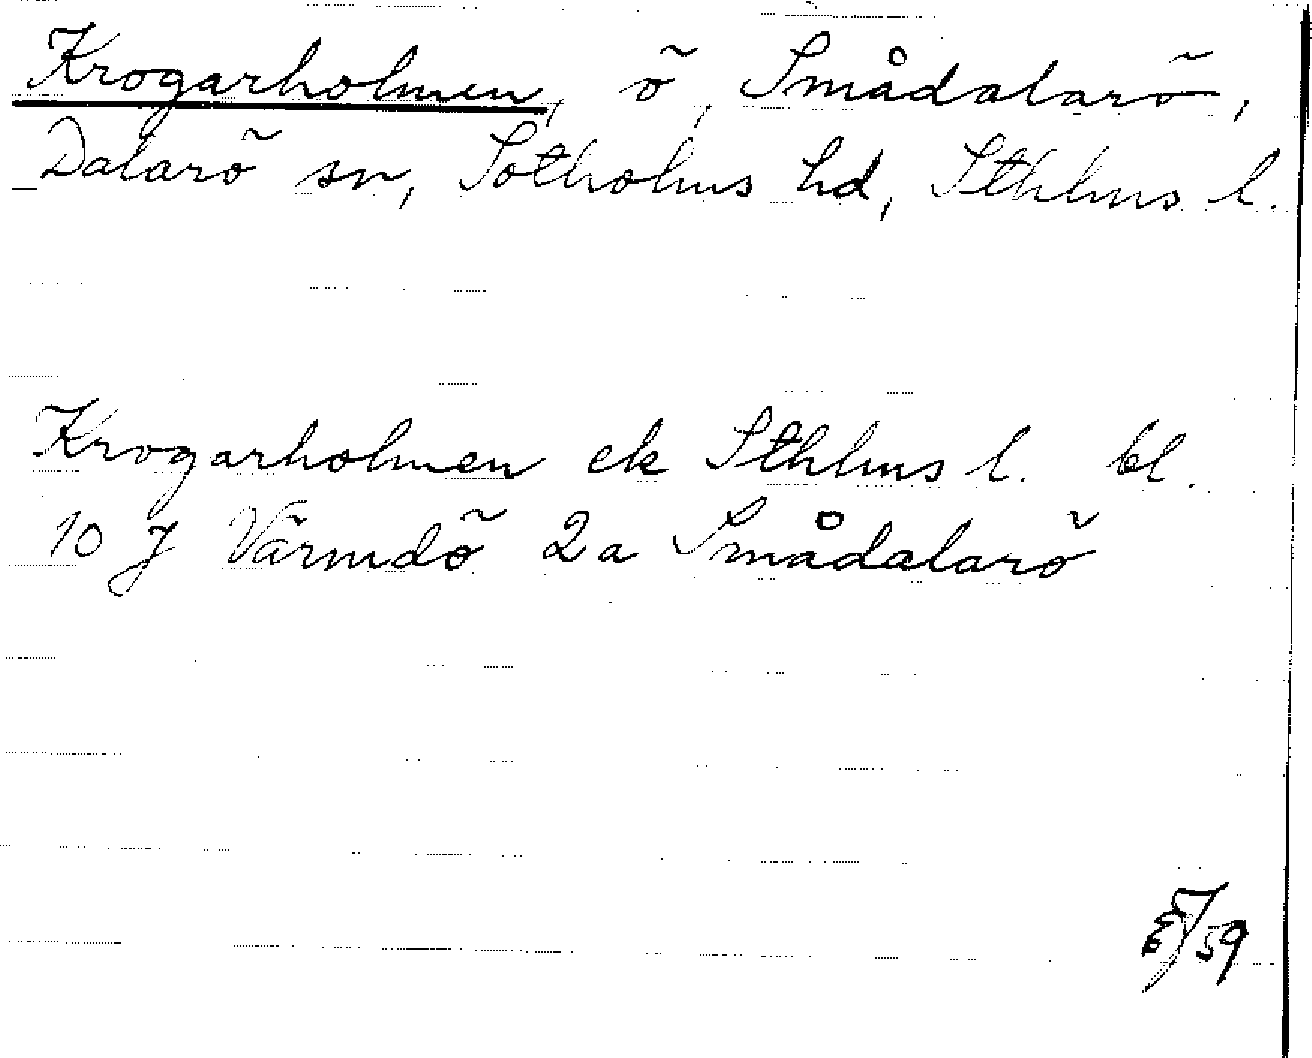 Krogarholmen, ö, Smådalarö,
Dalarö sn, Sotholms hd, Sthlms l.
Krogarholmen ek Sthlms l. bl.
10 J Värmdö 2a Smådalarö
EJ/59